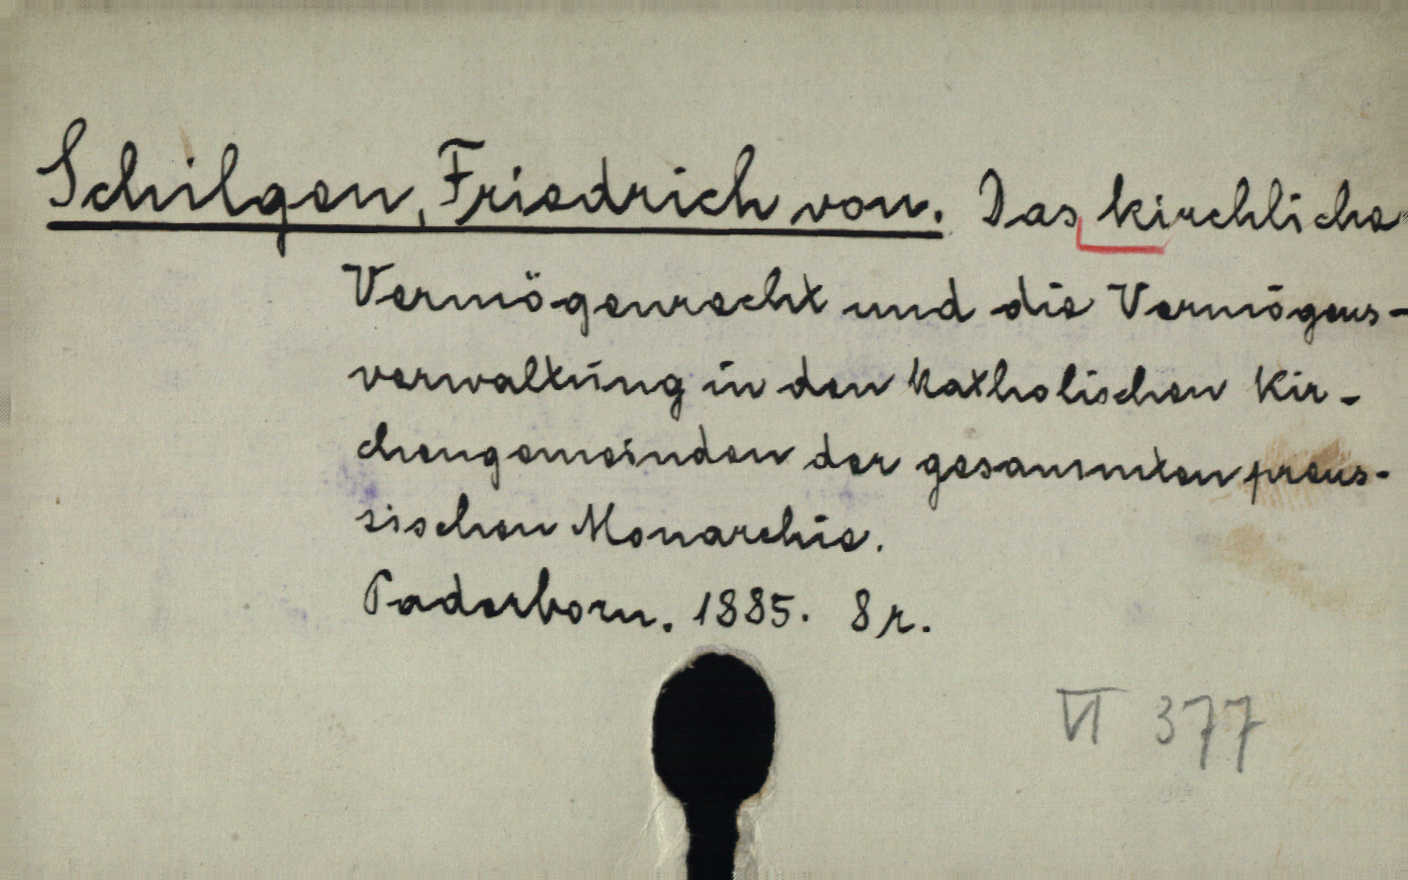 Schilgen, Friedrich von. Das kirchliche
Vermögenrecht und die Vermögens-
verwaltung in den Katholischen Kir-
chengemeinden der gesammten preus-
sischen Monarchie.
Paderborn. 1885. 8r.
VI 377